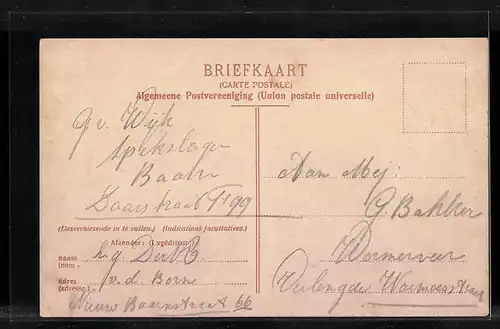 BRIEFKAART
(CARTE POSTALE)
Algemeene Postvereeniging (Union postale universelle)
G v. Wijk
spekslager
Baarn
(Desverkiezende in te vullen.) (Indications facultatives.)
Afzender: (Expéditeur.)
naam
(nom.
adres
(adresse.)
v. d. Born
Nieuw Baarnstraat 66
Aan Mej:
G. Bakker
Wormerveer